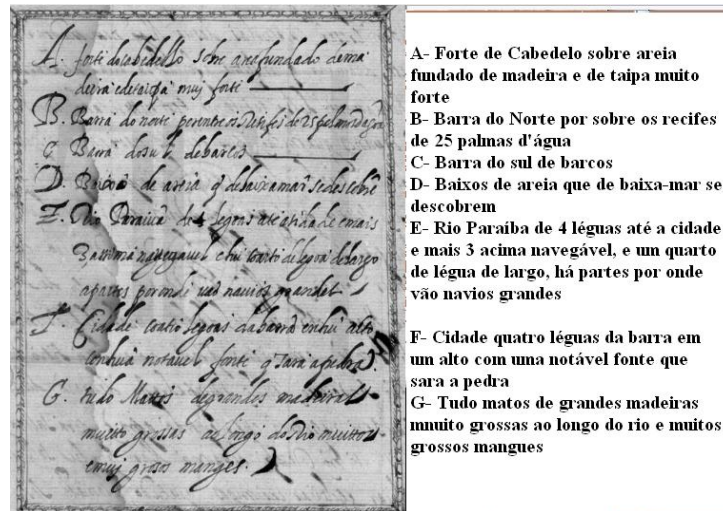 A. forte do cabedello sobre area fundado dema
deira e de taipa muy forte
B. Barra do norte per entre os Recifes de 25 palmos dagoa
C Barra do sul de barcos
D. Baixos de areia q de baixamar se descobrē
E. Rio Paraiva de 4 legoas ate a cidade e mais
3 assima navegavel e hũ coarto de legoa de largo
a partes por onde vaõ navios grandes
F. Cidade coatro legoas da barra en hũ alto
con huã notavel fonte q sara a pedra
G. tudo Mattos de grandes madeiras
muito grossas ao longo do Rio muittos
e muy grosos manges.
A- Forte de Cabedelo sobre areia
fundado de madeira e de taipa muito
forte
B- Barra do Norte por sobre os recifes
de 25 palmas d'água
C- Barra do sul de barcos
D- Baixos de areia que de baixa-mar se
descobrem
E- Rio Paraíba de 4 léguas até a cidade
e mais 3 acima navegável, e um quarto
de légua de largo, há partes por onde
vão navios grandes
F- Cidade quatro léguas da barra em
um alto com uma notável fonte que
sara a pedra
G- Tudo matos de grandes madeiras
mnuito grossas ao longo do rio e muitos
grossos mangues